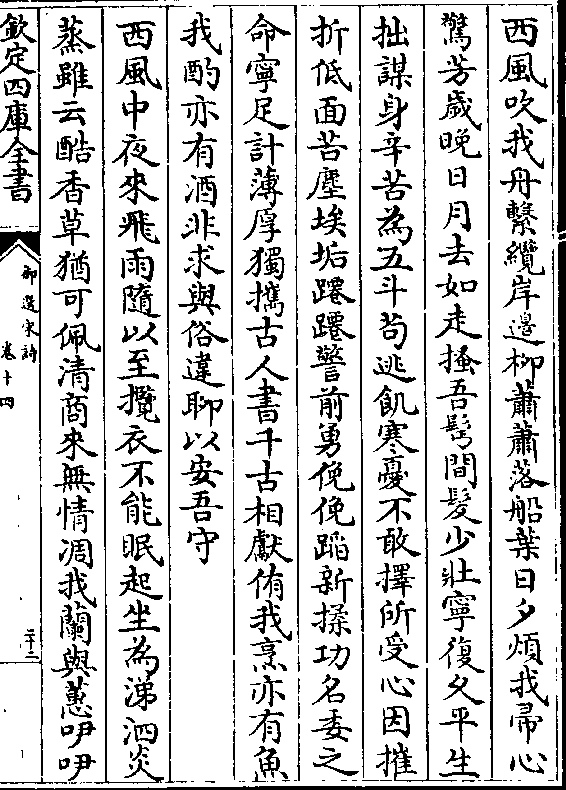 西風吹我舟繫纜岸邊柳蕭蕭落船葉日夕煩我帚心
驚芳歲晚日月去如走搔吾鬢間髮少壯寧復久平生
拙謀身辛苦為五斗苟逃飢寒憂不敢擇所受心因摧
折低面苦塵埃垢躚躚警前勇俛俛蹈新揉功名委之
命寧足計薄厚獨攜古人書千古相獻侑我烹亦有魚
我酌亦有酒非求與俗違聊以安吾守
西風中夜來飛雨隨以至攬衣不能眠起坐為涕泗炎
蒸雖云酷香草猶可佩清商來無情凋我蘭與蕙吚吚
欽定四庫全書
御選宋詩
卷十四
三十三